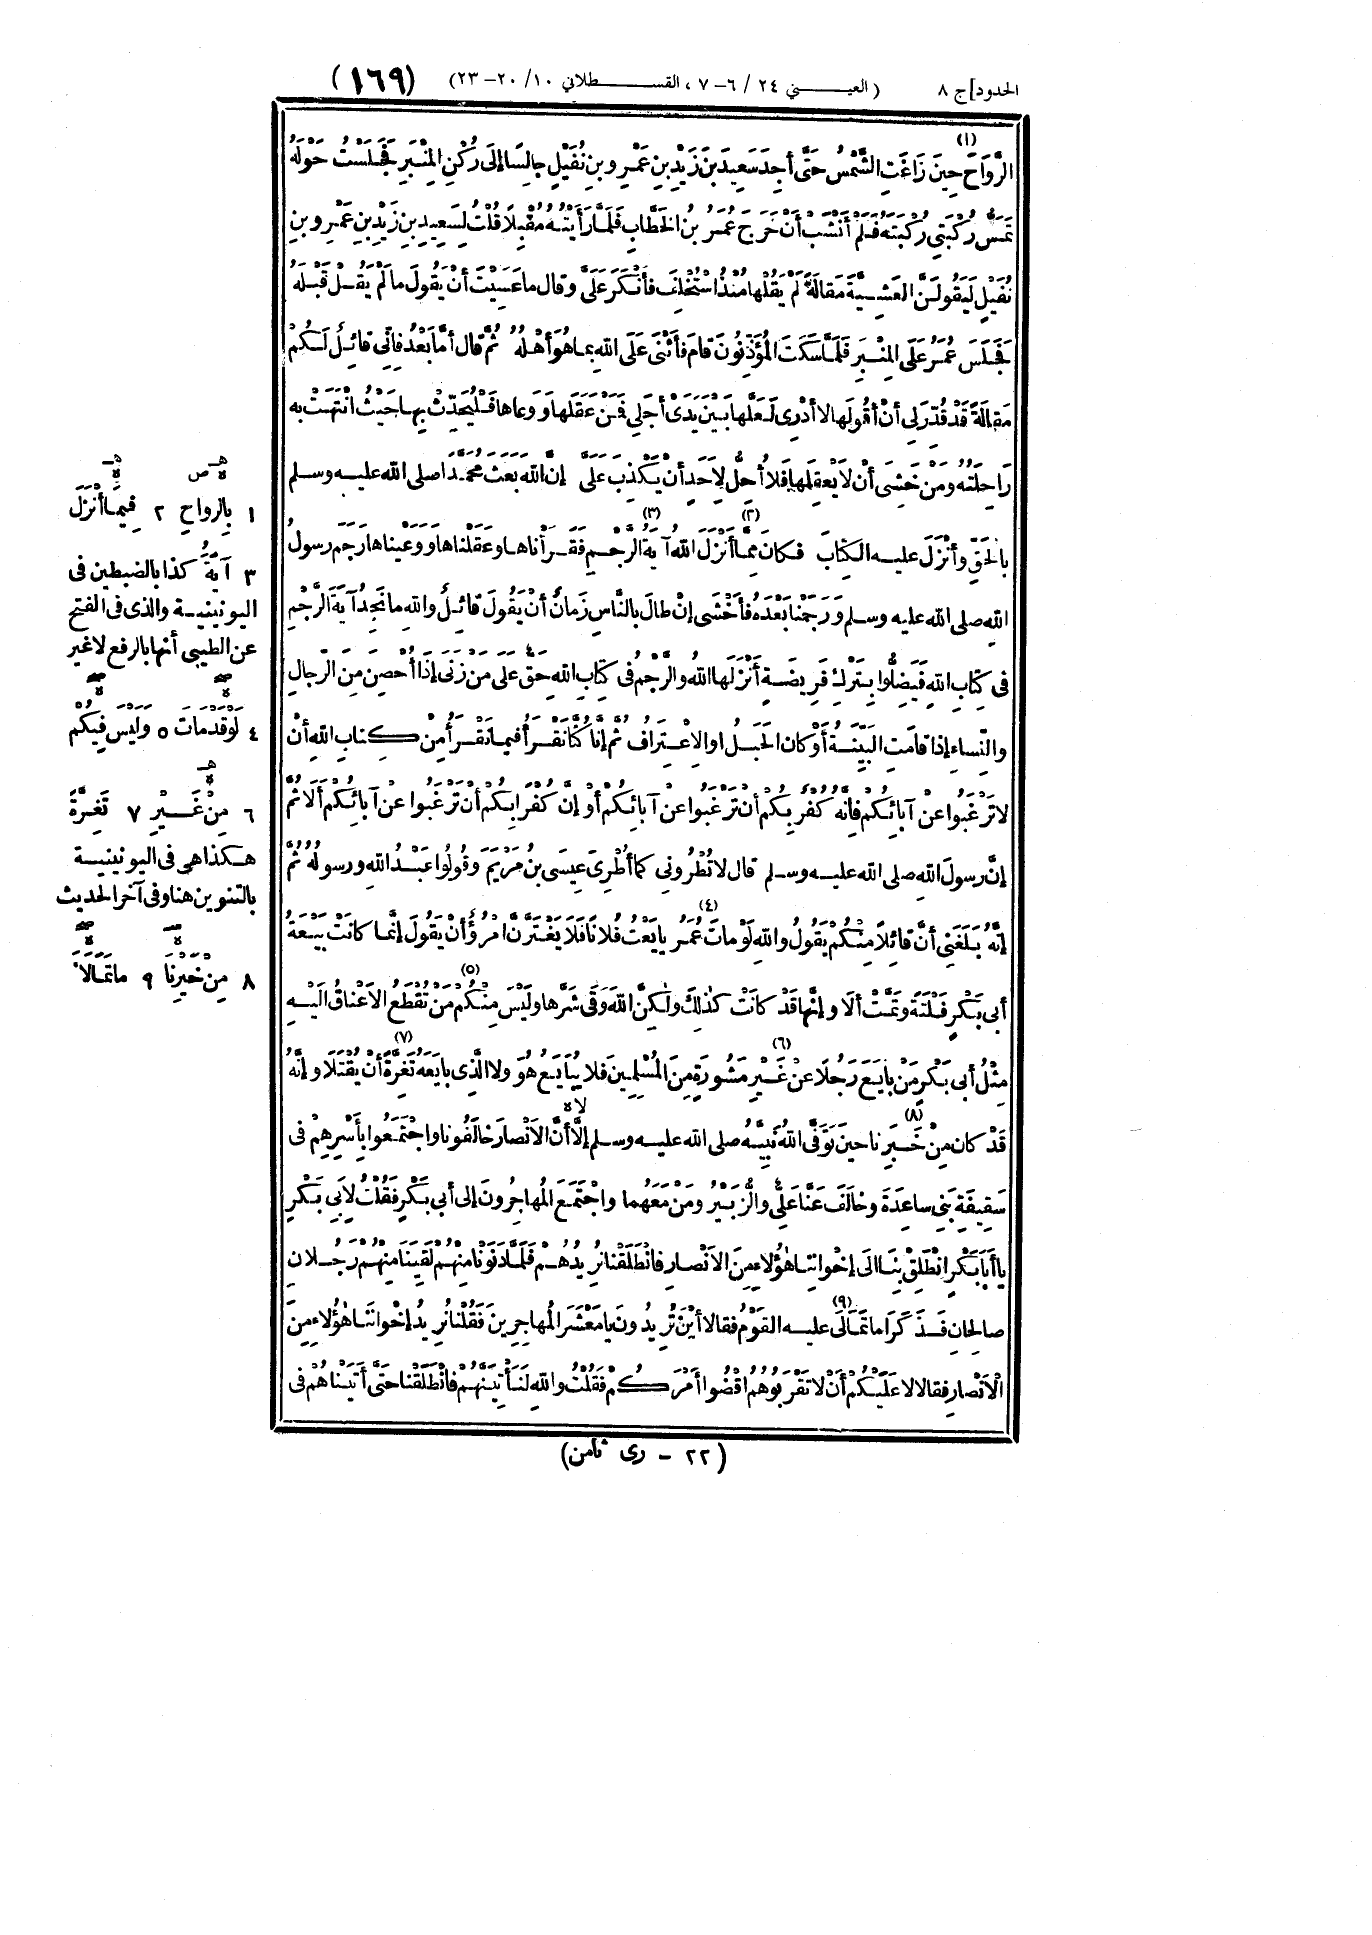 الحدود] ج ٨ (العيني ٢٤ / ٦-٧ ، القسطلاني ١٠/ ٢٠-٢٣) (١٦٩)
الرَّوَاحَ (١) حِينَ زَاغَتِ الشَّمْسُ حَتَّى أَجِدَ سَعِيدَ بْنَ زَيْدِ بْنِ عَمْرِو بنِ نُفَيْلٍ جالِسًا إلَى رُكْنِ المِنْبَرِ فَجَلَسْتُ حَوْلَهُ
تَمَسُّ رُكْبَتِي رُكْبَتَهُ فَلَمْ أَنْشَبْ أَنْ خَرَجَ عُمَرُ بنُ الخَطَّابِ فَلَمَّا رَأَيْتُهُ مُقْبِلاً قُلْتُ لِسَعِيدِ بنِ زَيْدِ بنِ عَمْرِو بنِ
نُفَيْلٍ لَيَقُولَنَّ العَشِيَّةَ مَقَالَةً لَمْ يَقُلْها مُنْذُ اسْتُخْلِفَ فَأَنْكَرَ عَلَىَّ وقال ما عَسَيْتَ أَنْ يَقُولَ ما لَمْ يَقُلْ قَبْلَهُ
فَجَلَسَ عُمَرُ عَلَى المِنْبَرِ فَلَمَّا سَكَتَ المُؤَذِّنُونَ قامَ فَأَثْنَى عَلَى اللهِ بِما هُوَ أَهْلُهُ ثُمَّ قال أَمَّا بَعْدُ فَإِنِّى قائِلٌ لَكُمْ
مَقالَةً قَدْ قُدِّرَ لِى أَنْ أَقُولَها لا أَدْرِى لَعَلَّها بَيْنَ يَدَىْ أَجَلِى فَمَنْ عَقَلَها وَوَعاها فَلْيُحَدِّثْ بِها حَيْثُ انْتَهَتْ بِهِ
رَاحِلَتُهُ ومَنْ خَشِىَ أَنْ لا يَعْقِلَها فَلا أُحِلُّ لِأَحَدٍ أَنْ يَكْذِبَ عَلَىَّ إنَّ اللهَ بَعَثَ مُحَمَّدًا صلى الله عليه وسلم
بِالحَقِّ وأَنْزَلَ عليه الكِتابَ فَكانَ مِمَّا (٢) أَنْزَلَ اللهُ آيَةُ (٣) الرَّجْمِ فَقَرَأْناها وعَقَلْناها ووَعَيْناها رَجَمَ رسولُ
اللهِ صلى الله عليه وسلم ورَجَمْنا بَعْدَهُ فَأَخْشَى إنْ طالَ بالنَّاسِ زَمانٌ أَنْ يَقُولَ قائِلٌ واللهِ ما نَجِدُ آيَةَ الرَّجْمِ
فى كِتابِ اللهِ فَيَضِلُّوا بِتَرْكِ فَرِيضَةٍ أَنْزَلَها اللهُ والرَّجْمُ فى كِتابِ اللهِ حَقٌّ عَلَى مَنْ زَنَى إذَا أُحْصِنَ مِنَ الرِّجالِ
والنِّساءِ إذا قامَتِ البَيِّنَةُ أَوْ كان الحَبَلُ أوِ الِاعْتِرافُ ثُمَّ إنَّا كُنَّا نَقْرَأُ فِيما نَقْرَأُ مِنْ كِتابِ اللهِ أَنْ
لا تَرْغَبُوا عنْ آبائِكُمْ فإنَّهُ كُفْرٌ بِكُمْ أَنْ تَرْغَبُوا عنْ آبائِكُمْ أوْ إنَّ كُفْرًا بِكُمْ أَنْ تَرْغَبُوا عنْ آبائِكُمْ أَلا ثُمَّ
إنَّ رسولَ اللهِ صلى الله عليه وسلم قال لا تُطْرُونِى كما أُطْرِىَ عِيسَى بنُ مَرْيَمَ وقُولُوا عَبْدُ اللهِ ورسولُهُ ثُمَّ
إنَّهُ بَلَغَنِى أَنَّ قائِلاً مِنْكُمْ يَقُولُ واللهِ لَوْ ماتَ (٤) عُمَرُ بايَعْتُ فُلانًا فَلا يَغْتَرَّنَّ امْرُؤٌ أَنْ يَقُولَ إنَّما كانَتْ بَيْعَةُ
أبى بَكْرٍ فَلْتَةً وتَمَّتْ أَلا وإنَّها قَدْ كانَتْ كَذٰلِكَ ولٰكِنَّ اللهَ وَقَى شَرَّها ولَيْسَ مِنْكُمْ (٥) مَنْ تُقْطَعُ الأَعْناقُ إلَيْهِ
مِثْلُ أبى بَكْرٍ مَنْ بايَعَ رَجُلاً عنْ (٦) غَيْرِ مَشُورَةٍ مِنَ المُسْلِمِينَ فَلا يُبايَعُ هُوَ ولا الَّذِى بايَعَهُ تَغِرَّةً (٧) أَنْ يُقْتَلا وإنَّهُ
قَدْ كان مِنْ خَبَرِنا (٨) حِينَ تَوَفَّى اللهُ نَبِيَّهُ صلى الله عليه وسلم إلَّا أَنَّ الأَنْصارَ خالَفُونا واجْتَمَعُوا بِأَسْرِهِمْ فى
سَقِيفَةِ بَنِى ساعِدَةَ وخالَفَ عَنَّا عَلِىٌّ والزُّبَيْرُ ومَنْ مَعَهُما واجْتَمَعَ المُهاجِرُونَ إلى أبى بَكْرٍ فَقُلْتُ لِأَبِى بَكْرٍ
يا أَبا بَكْرٍ انْطَلِقْ بِنا إلَى إخْوانِنا هٰؤُلاءِ مِنَ الأَنْصارِ فانْطَلَقْنا نُرِيدُهُمْ فَلَمَّا دَنَوْنا مِنْهُمْ لَقِيَنا مِنْهُمْ رَجُلانِ
صالِحانِ فَذَكَرا ما تَمالَى (٩) عليه القَوْمُ فقالا أَيْنَ تُرِيدُونَ يا مَعْشَرَ المُهاجِرِينَ فَقُلْنا نُرِيدُ إخْوانَنا هٰؤُلاءِ مِنَ
الأَنْصارِ فقالا لا عَلَيْكُمْ أَنْ لا تَقْرَبُوهُمُ اقْضُوا أَمْرَكُمْ فَقُلْتُ واللهِ لَنَأْتِيَنَّهُمْ فانْطَلَقْنا حَتَّى أَتَيْناهُمْ فى
(٢٢ - رى ثامن)
١ بِالرواحِ ٢ فِيمَا أَنْزَلَ
٣ آيَةُ كذا بالضبطين فى
اليونينية والذى فى الفتح
عن الطيبى أنها بالرفع لا غير
٤ لَوْ قَدْ مَاتَ ٥ ولَيْسَ فِيكُمْ
٦ مِنْ غَيْرِ ٧ تَغِرَّةً
هكذا هى فى اليونينية
بالتنوين هنا وفى آخر الحديث
٨ مِنْ خَيْرِنَا ٩ ما تَمَالَأَ